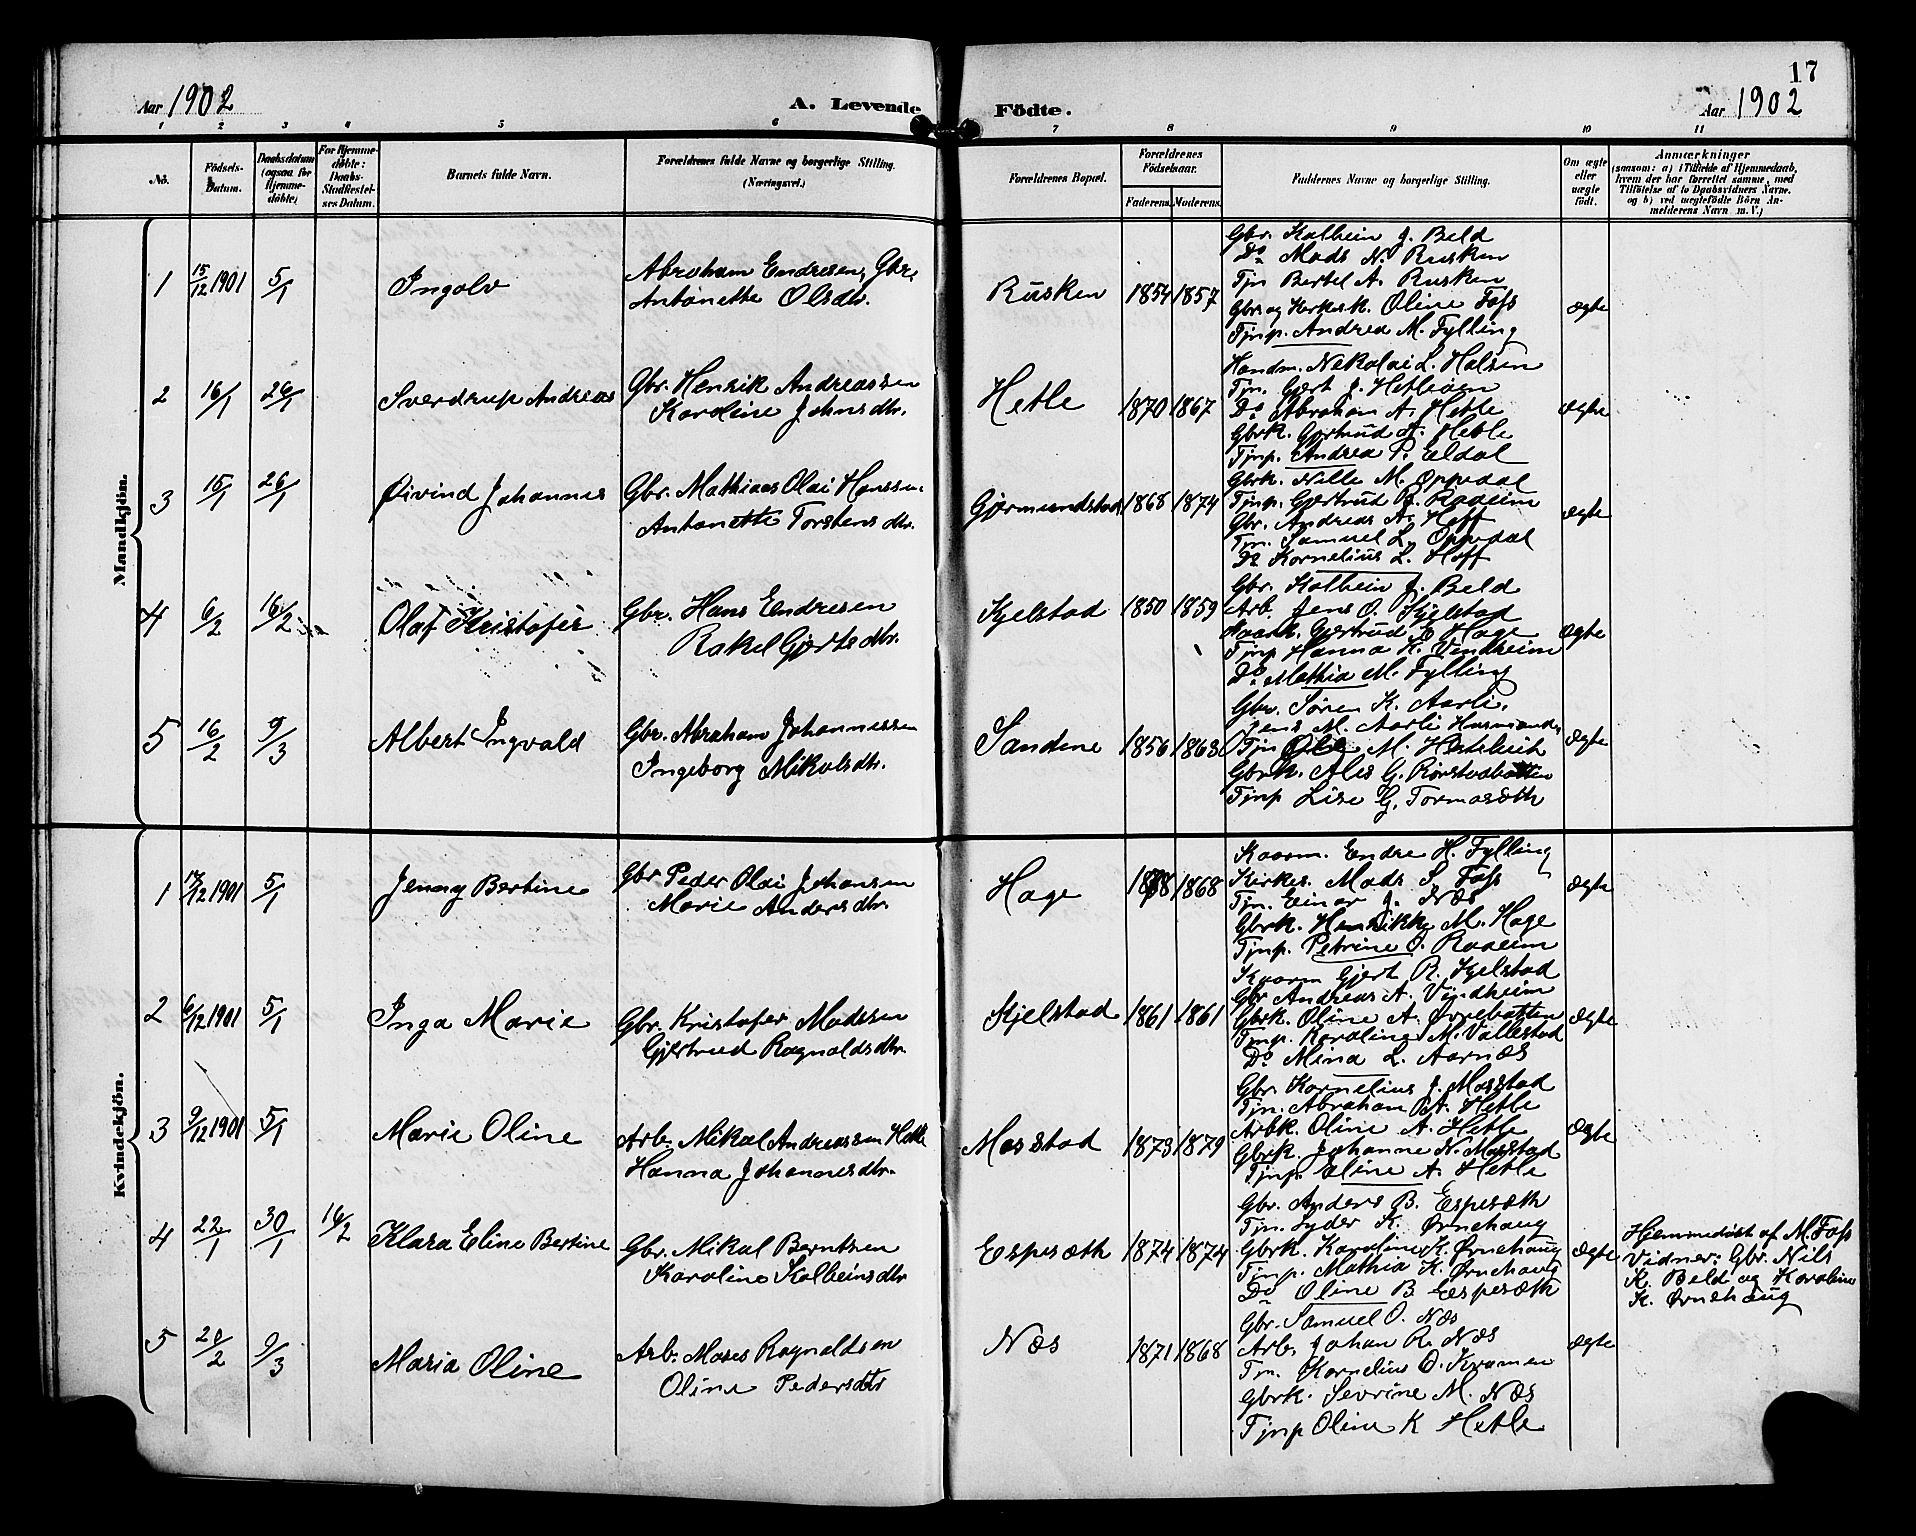 17
Aar 1902
A. Levende Födte.
Aar 1902
1 2 3 4 5 6 7 8 9 10 11
No.
Födsels-
Datum.
Daabsdatum
(ogsaa for
Hjemme-
døbte)
For Hjemme-
døbte:
Daabs-
Stadfæstel-
ses Datum.
Barnets fulde Navn.
Forældrenes fulde Navne og borgerlige Stilling.
(Næringsvei.)
Forældrenes Bopæl.
Forældrenes
Födselsaar.
Faderens. Moderens.
Faddernes Navne og borgerlige Stilling.
Om ægte
eller
uægte
födt.
Anmærkninger
(saasom: a) i Tilfælde af Hjemmedaab,
hvem der har forrettet samme, med
Tilföielse af to Daabsvidners Navne.
og b) ved uægtefödte Börn An-
melderens Navn m. V.)
Mandkjön.
1 15/12 1901 5/1 Ingolv
Abraham Endresen, Gbr.
Antonette Olsdtr.
Rusken 1854 1857
Gbr. Kolbein J. Beld
Do Mads N. Rusken
Tjn Bertel A. Rusken
Gbr og Kirkesk. Oline Fofs
Tjnp. Andrea M. Fylling
ægte
2 16/1 26/1 Sverdrup Andreas
Gbr. Henrik Andreassen
Karoline Johnsdtr.
Hetle 1870 1867
Handm. Nikolai L. Halsen
Tjn. Gjert J. Hetleøen
Do Abraham A. Hetle
Gbrk. Gjertrud A. Hetle
Tjnp. Andrea P. Eldal
ægte
3 15/1 26/1 Øivind Johannes
Gbr. Mathias Olai Hanssen
Antonette Torstensdtr.
Gjermundstad 1868 1874
Gbrk. Nille M. Oppedal
Tjnp. Gjertrud J. Raaeim
Gbr. Andreas A. Hoff
Tjn. Samuel L. Oppedal
Do Kornelius L. Hoff
ægte
4 6/2 16/2 Olaf Kristofer
Gbr. Hans Endresen
Rakel Gjertsdtr.
Kjelstad 1850 1859
Gbr. Kolbein J. Beld
Arb. Jens O. Kjelstad
Kaark. Gjertrud Hage
Tjnp Hanna H. Vindheim
Do Mathia M. Fylling
ægte
5 16/2 9/3 Albert Ingvald
Gbr. Abraham Johannessen
Ingeborg Mikalsdtr.
Sandene 1856 1863
Gbr. Søren K. Aarli.
Jens M. Aarli Husmandss
Tjn Ole M. Hestebeit
Gbrk. Ales G. Rørstadbotten
Tjnp Lise G. Tormasæth
ægte
Kvindekjön.
1 12/12 1901 5/1 Jenny Bertine
Gbr Peder Olai Johansen
Marie Andersdtr.
Hage 1868
Kaarm. Endre H. Fylling
Kirkes. Mads S. Fofs
Tjn. Einar J. Næs
Gbrk. Henrikke M. Hage
Tjnp. Petrine O. Raaeim
ægte
2 6/12 1901 5/1 Inga Marie
Gbr. Kristofer Madssen
Gjertrud Ragnaldsdtr.
Kjelstad 1861 1861
Kaarm Gjert R. Kjelstad
Gbr Andreas A. Vindheim
Gbrk. Oline A. Øvrebotten
Tjnp. Karoline M. Vallestad
Do Mina L. Aarnæs
ægte
3 9/12 1901 5/1 Marie Oline
Arb. Mikal Andreassen Hetle
Hanna Johannesdtr.
Masstad 1873 1879
Gbr. Kornelius J. Masstad
Tjn. Abraham A. Hetle
Arbk. Oline A. Hetle
Gbrk. Johanne N. Masstad
Tjnp. Eline A. Hetle
ægte
4 22/1 30/1 16/2 Klara Eline Bertine
Gbr. Mikal Berntsen
Karoline Kolbeinsdtr
Espesæth 1874 1874
Gbr. Anders B. Espesæth
Tjn. Lyder K. Ørnehaug
Gbrk. Karoline K. Ørnehaug
Tjnp. Mathia K. Ørnehaug
Do Oline B. Espesæth
ægte
Hjemmedøbt af M. Fofs
Vidner: Gbr. Nils
K. Beld og Karoline
K. Ørnehaug
5 20/2 9/3 Maria Oline
Arb. Moses Ragnaldsen
Oline Pedersdtr
Næs 1871 1868
Gbr. Samuel O. Næs
Arb. Johan R. Næs
Tjn. Kornelius O. Kramen
Gbrk. Sevrine M. Næs
Tjnp Oline K Hetle
ægte